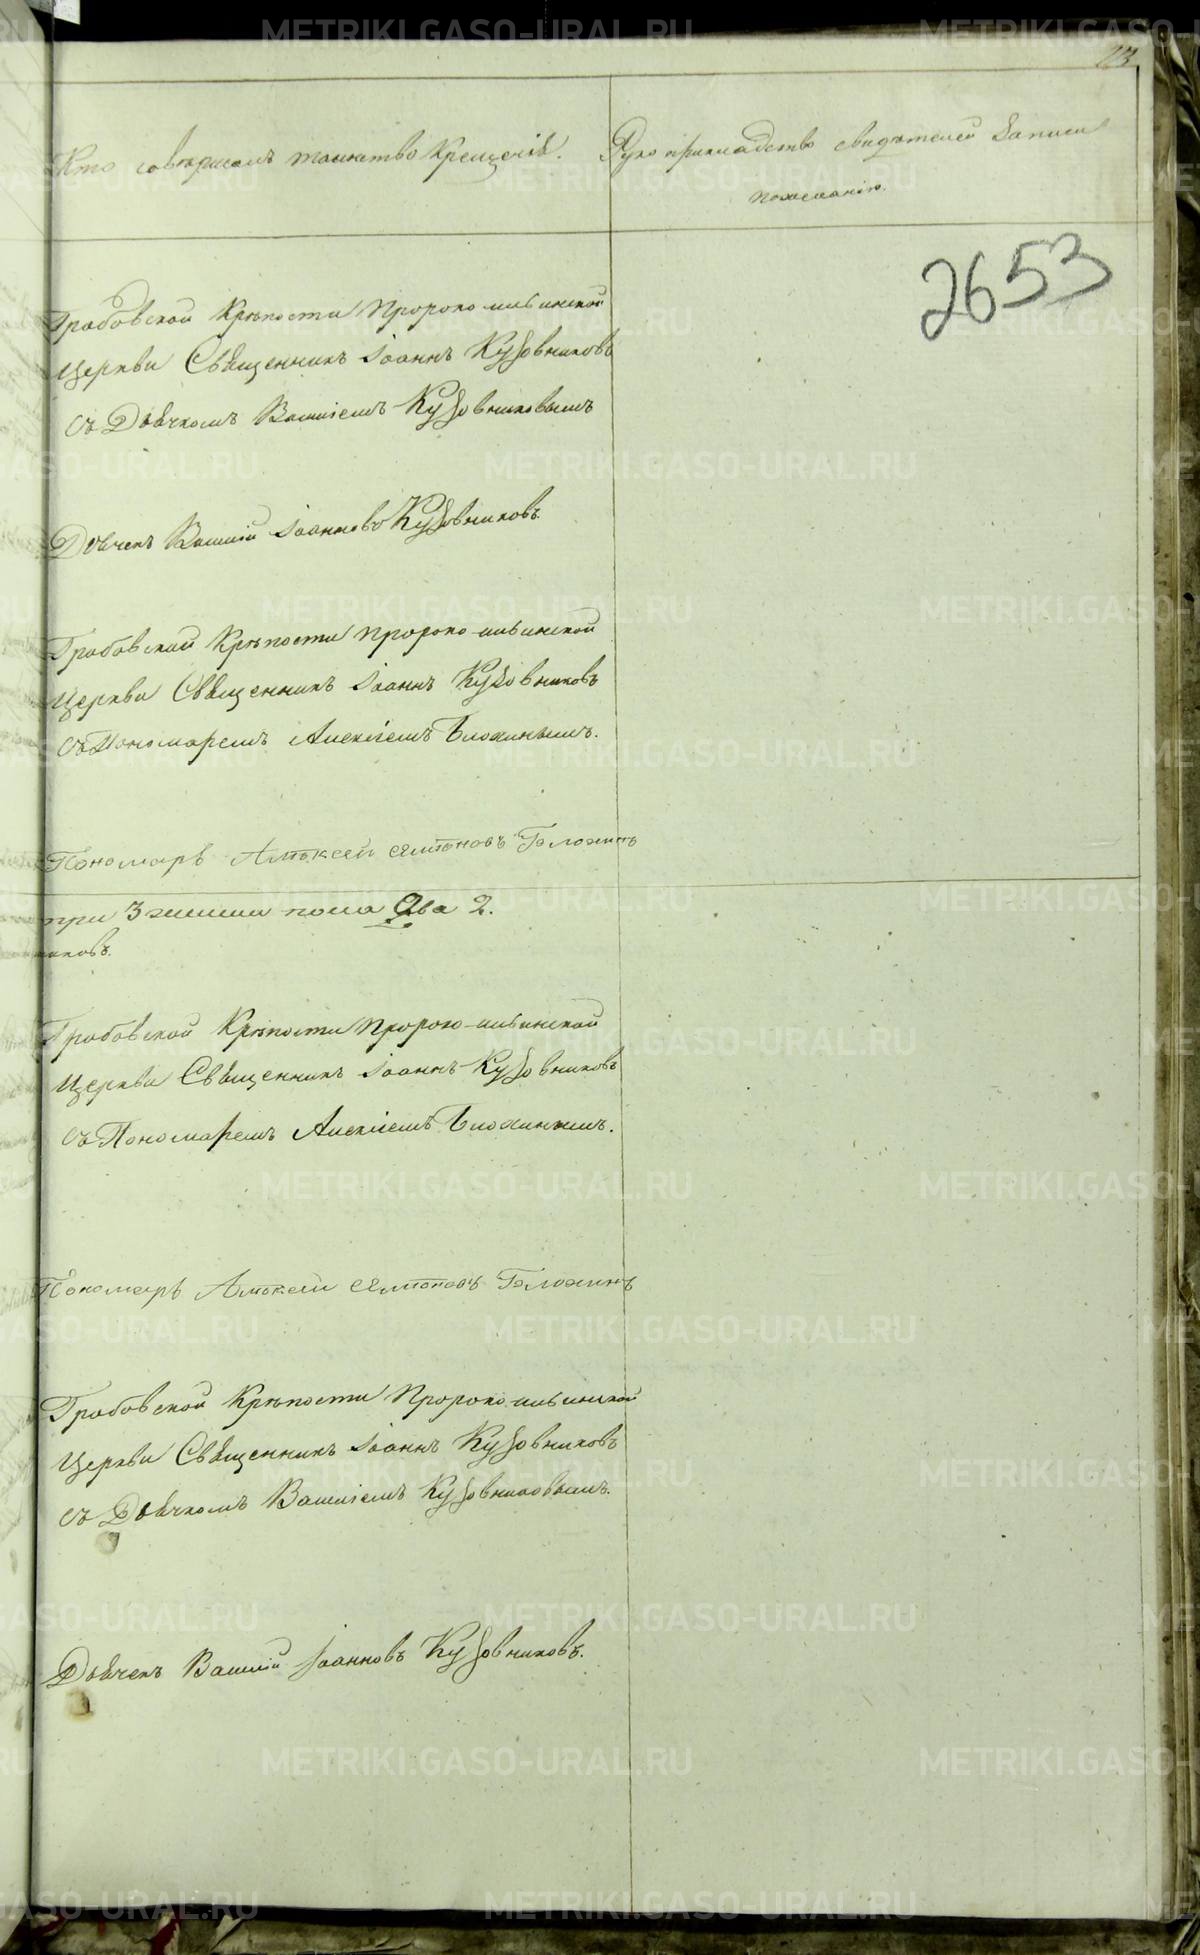 23
Кто совершалъ таинство Крещенія. Руко прикладство свидѣтелей Записи
пожеланію.
2653
Грабовской Крѣпости Пророко ильинской
Церкви Священникъ Іоаннъ Кузовниковъ
съ Дьячкомъ Василіемъ Кузовниковымъ
Дьячекъ Василій Іоанновъ Кузовниковъ.
Грабовской Крѣпости Пророко-ильинской
Церкви Священникъ Іоаннъ Кузовниковъ
съ Пономаремъ Алексіемъ Блохинымъ.
Пономарь Алѣксей Блохинъ
три 3 женска пола Два 2.
никовъ.
Грабовской Крѣпости Пророко-ильинской
Церкви Священникъ Іоаннъ Кузовниковъ
съ Пономаремъ Алексіемъ Блохинымъ.
Пономарь Алѣксей Блохинъ
Грабовской Крѣпости Пророко-ильинской
Церкви Священникъ Іоаннъ Кузовниковъ
съ Дьячкомъ Василіемъ Кузовниковымъ.
Дьячекъ Василій Іоанновъ Кузовниковъ.
METRIKI.GASO-URAL.RU